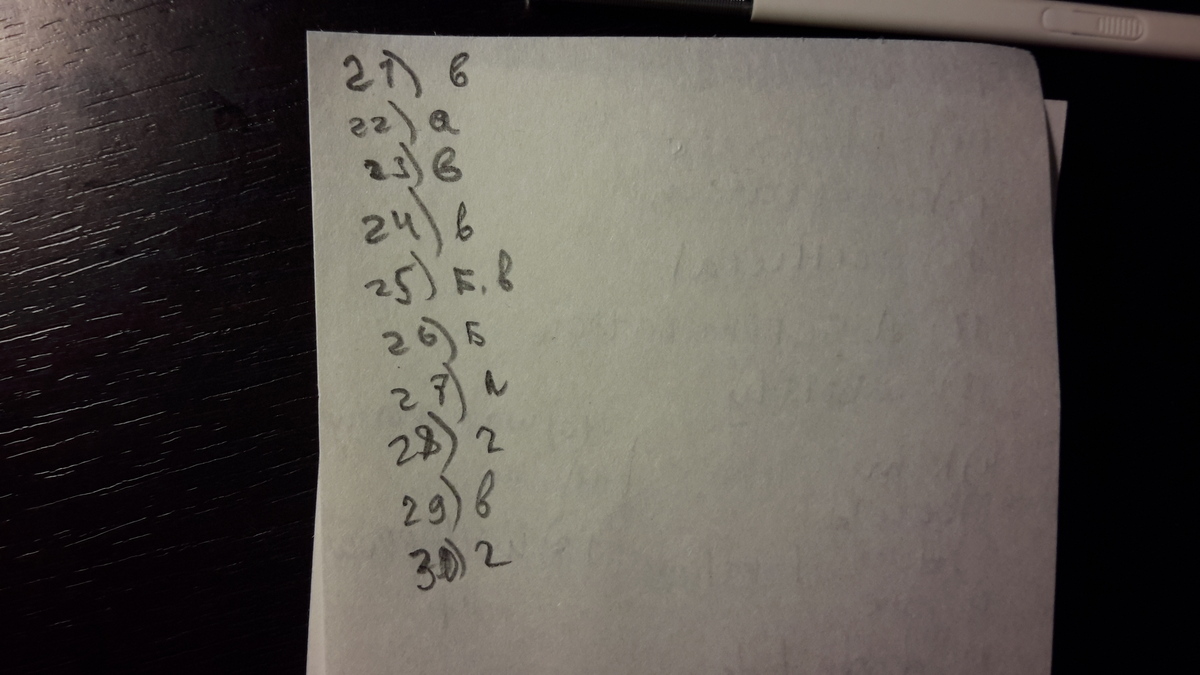 21) в
22) а
23) в
24) в
25) Б, в
26) Б
27) а
28) г
29) в
30) г